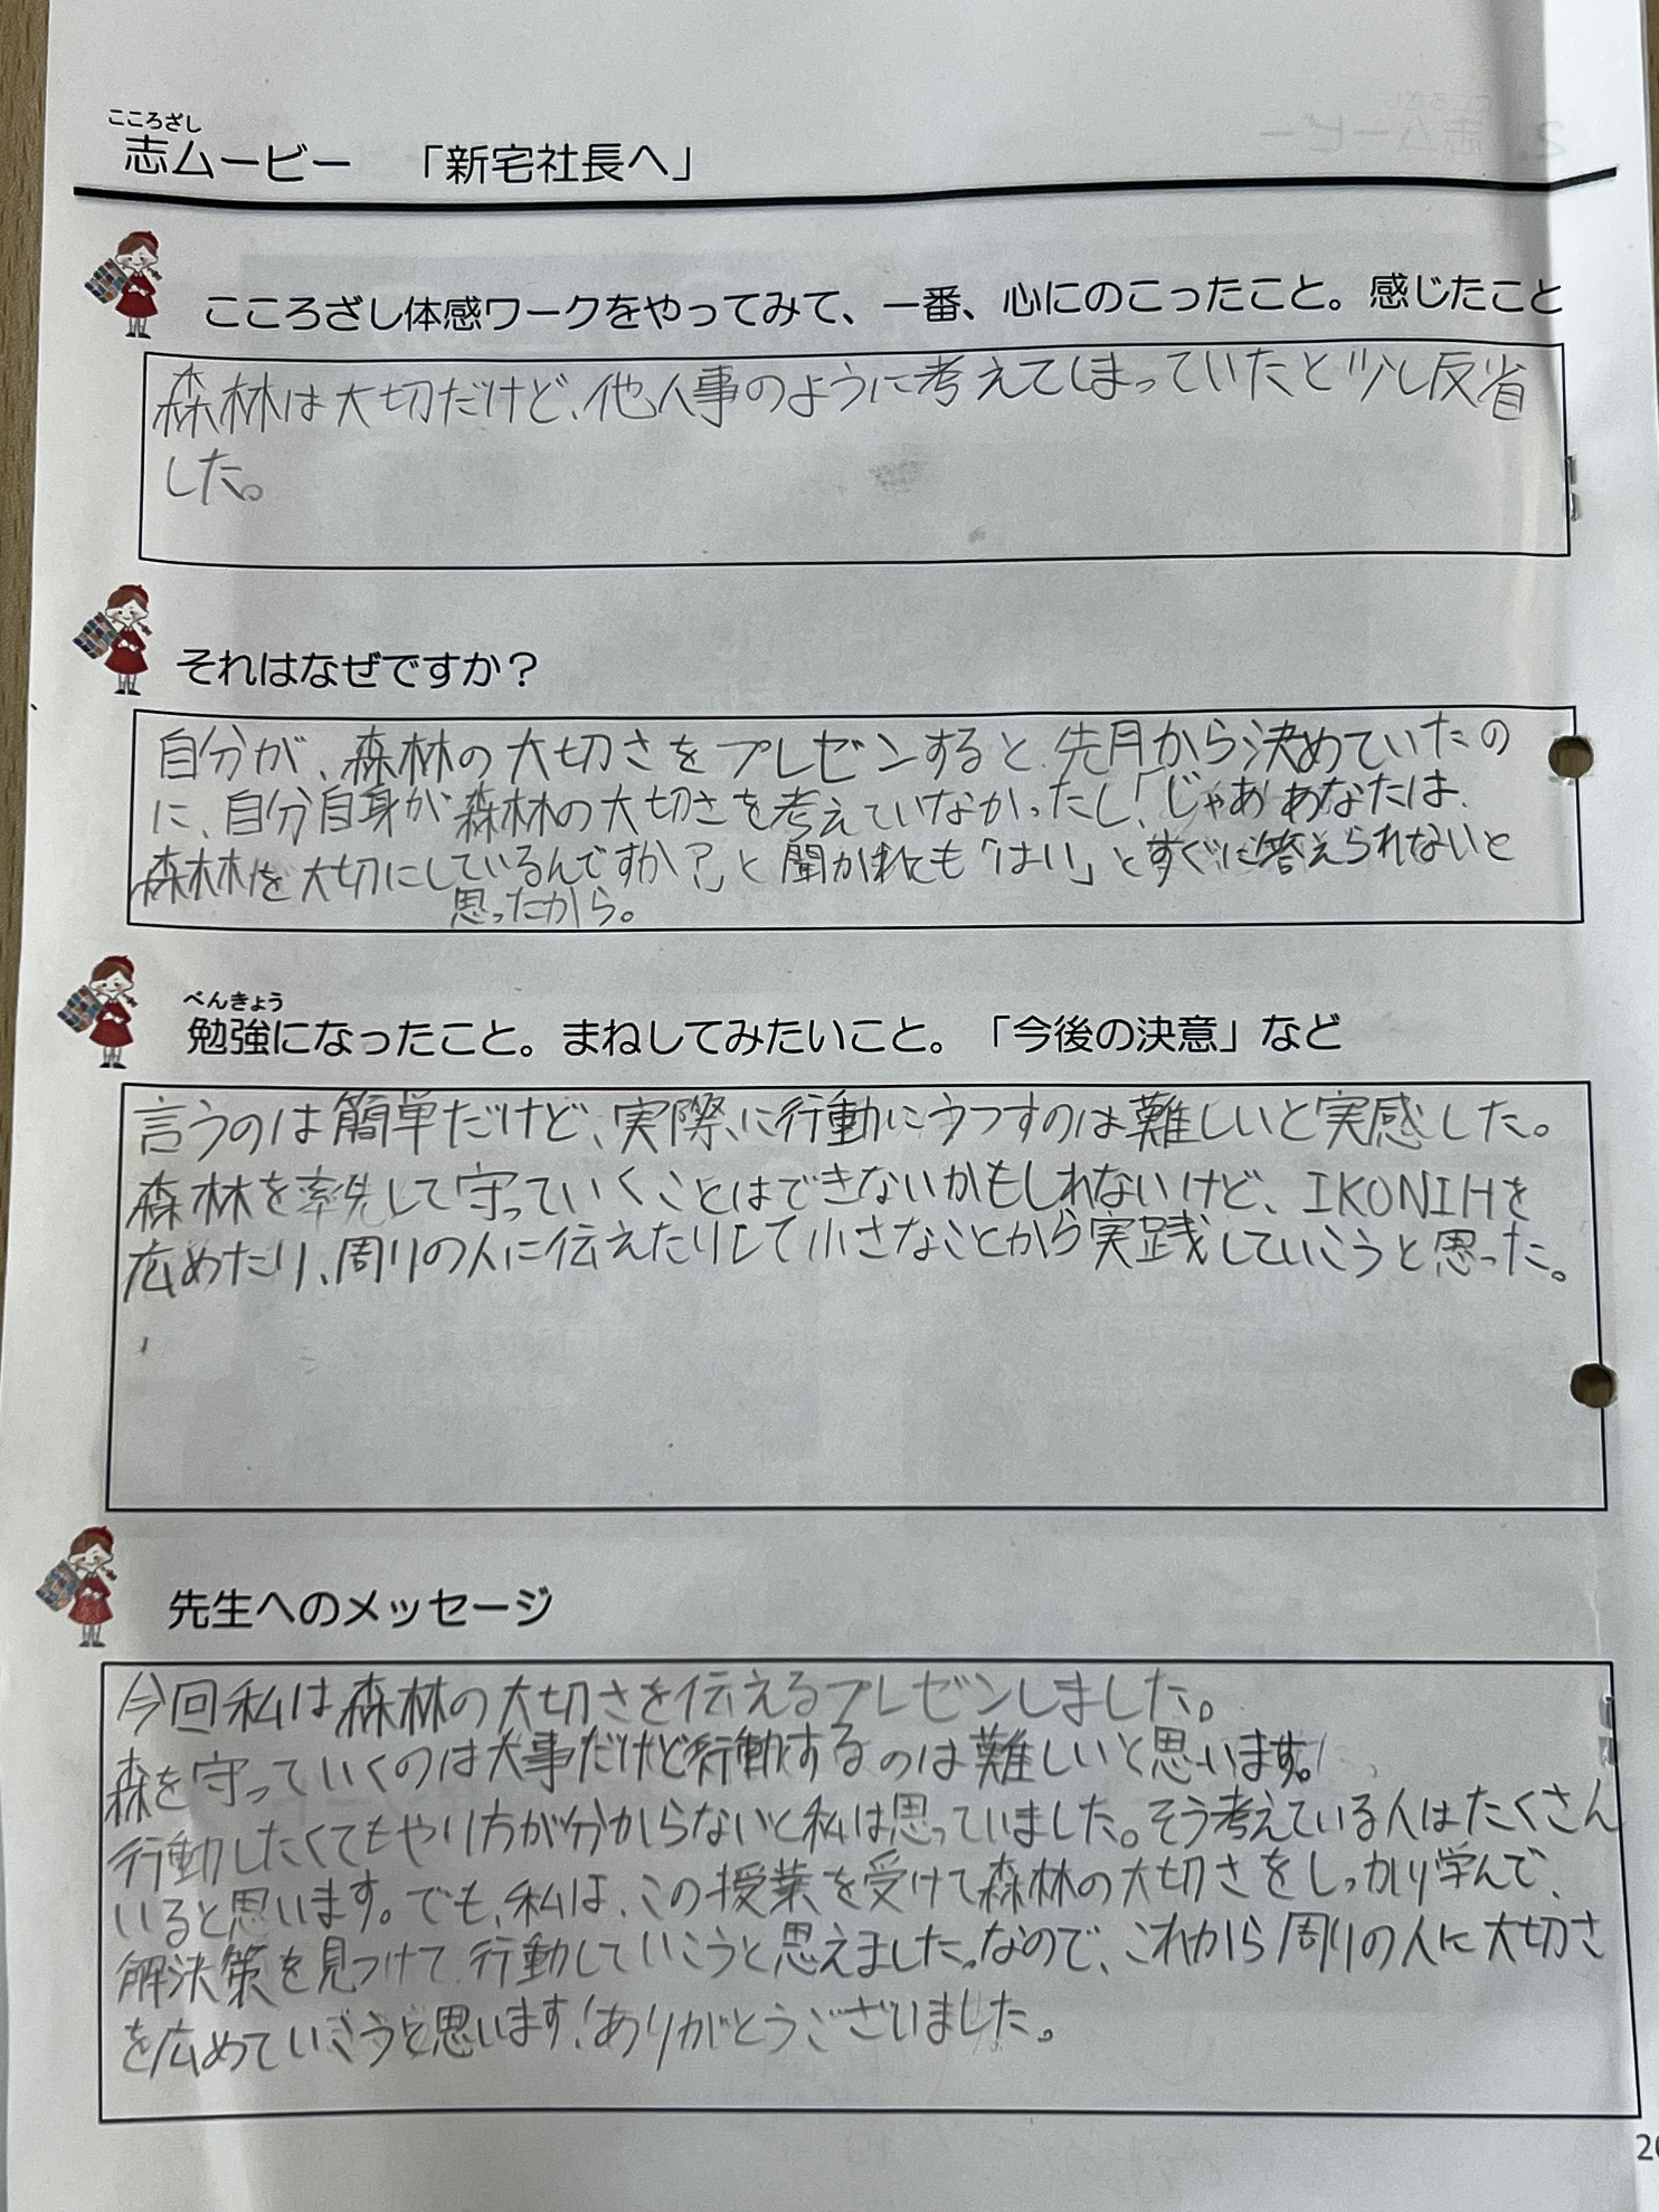 こころざし
志ムービー 「新宅社長へ」
こころざし体感ワークをやってみて、一番、心にのこったこと。感じたこと
森林は大切だけど、他人事のように考えてしまっていたと少し反省
した。
それはなぜですか？
自分が、森林の大切さをプレゼンすると先月から決めていたの
に、自分自身が森林の大切さを考えていなかったし、「じゃああなたは、
森林を大切にしているんですか？」と聞かれても「はい」とすぐに答えられないと
思ったから。
べんきょう
勉強になったこと。まねしてみたいこと。「今後の決意」など
言うのは簡単だけど、実際に行動にうつすのは難しいと実感した。
森林を率先して守っていくことはできないかもしれないけど、IKONIHを
広めたり、周りの人に伝えたりして小さなことから実践していこうと思った。
先生へのメッセージ
今回私は森林の大切さを伝えるプレゼンしました。
森を守っていくのは大事だけど行動するのは難しいと思います。
行動したくてもやり方が分からないと私は思っていました。そう考えている人はたくさん
いると思います。でも、私は、この授業を受けて森林の大切さをしっかり学んで、
解決策を見つけて行動していこうと思えました。なので、これから周りの人に大切さ
を広めていこうと思います！ありがとうございました。